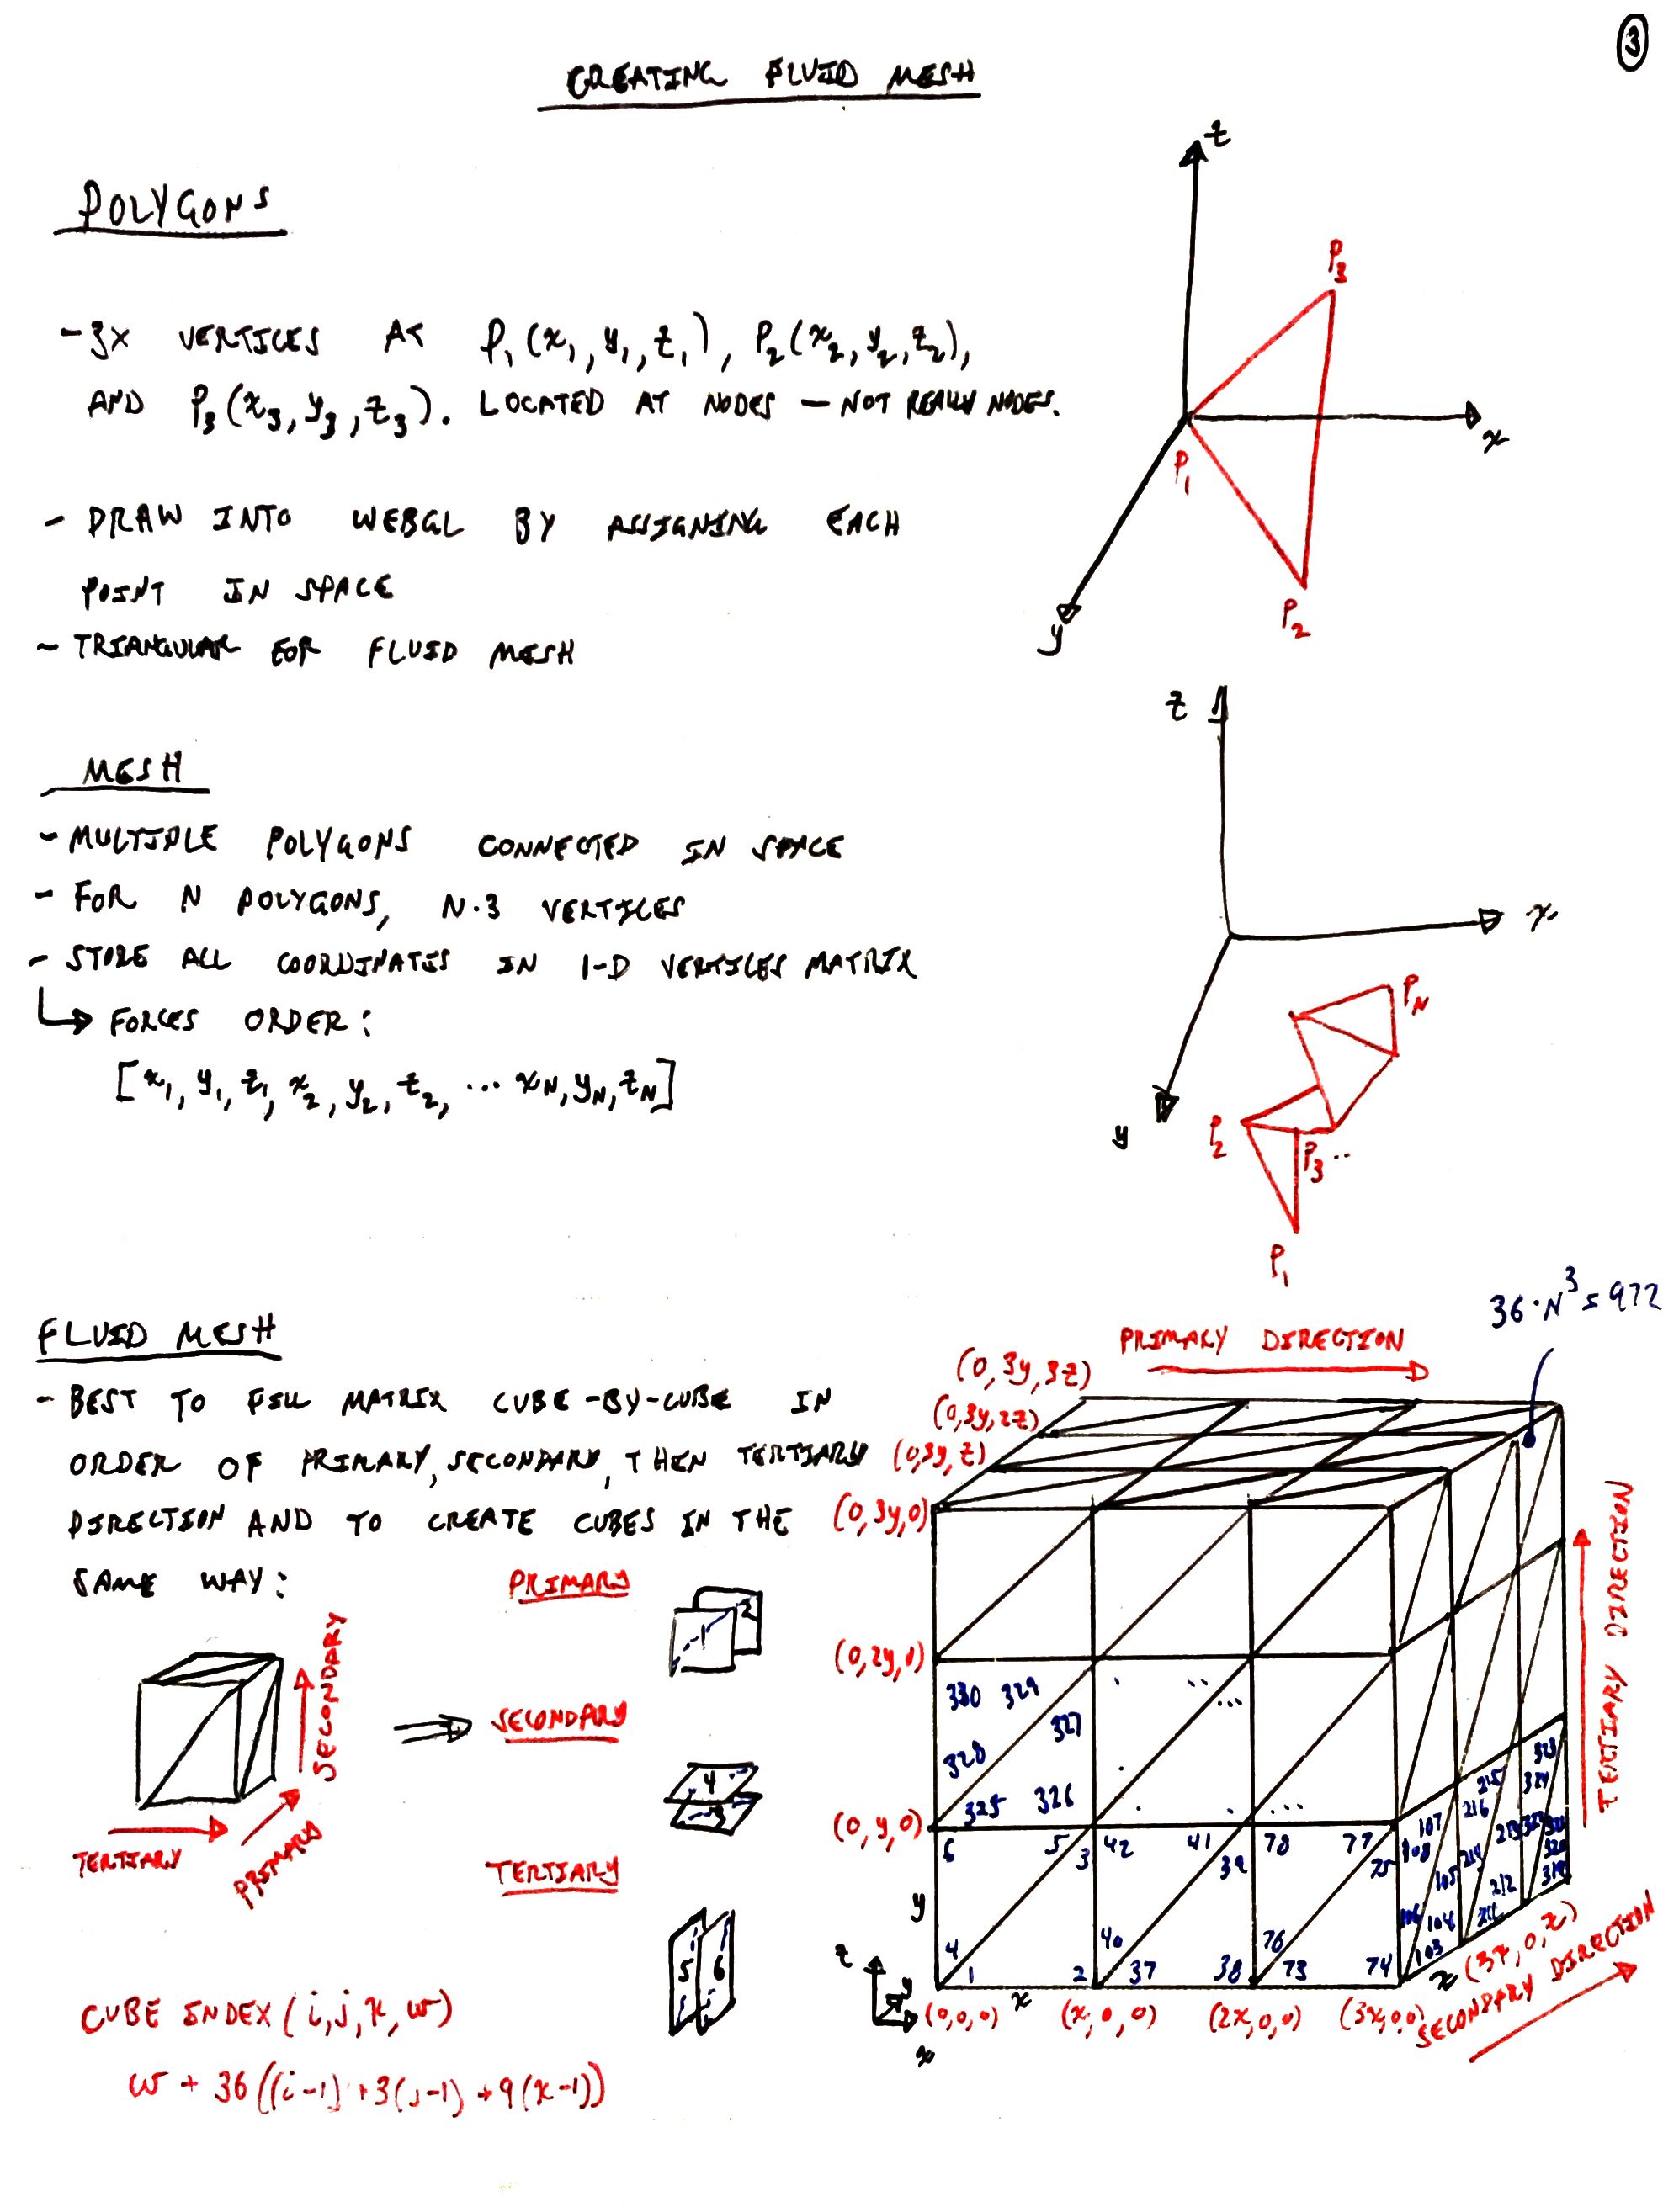 3
CREATING FLUID MESH
POLYGONS
- 3X VERTICES AT P₁(x₁, y₁, z₁), P₂(x₂, y₂, z₂),
AND P₃(x₃, y₃, z₃). LOCATED AT NODES — NOT REALLY NODES.
- DRAW INTO WEBGL BY ASSIGNING EACH
POINT IN SPACE
- TRIANGULAR FOR FLUID MESH
z
P₃
x
P₁
P₂
y
MESH
- MULTIPLE POLYGONS CONNECTED IN SPACE
- FOR N POLYGONS, N·3 VERTICES
- STORE ALL COORDINATES IN 1-D VERTICES MATRIX
↳ FORCES ORDER:
[x₁, y₁, z₁, x₂, y₂, z₂, ... xN, yN, zN]
z
x
PN
y
P₂
P₃ ..
P₁
FLUID MESH
- BEST TO FILL MATRIX CUBE-BY-CUBE IN
ORDER OF PRIMARY, SECONDARY, THEN TERTIARY
DIRECTION AND TO CREATE CUBES IN THE
SAME WAY:
SECONDARY
TERTIARY
PRIMARY
PRIMARY
1 2
SECONDARY
4
3
TERTIARY
5 6
CUBE INDEX (i, j, k, w)
w + 36((i-1) + 3(j-1) + 9(k-1))
36·N³ = 972
PRIMARY DIRECTION
(0, 3y, 3z)
(0, 3y, 2z)
(0, 3y, z)
(0, 3y, 0)
(0, 2y, 0)
(0, y, 0)
TERTIARY DIRECTION
330 329
327
328
325 326
. .. ...
. . ...
6 5 42 41 78 77
3 39 75
4 40 76
1 2 37 38 73 74
107
108
105
106 104
103
215
216
213
214
212
211
323
324
321
320
319
y
z
y
x
(0,0,0) x (x,0,0) (2x,0,0) (3x,0,0)
z (3x,0,z)
SECONDARY DIRECTION